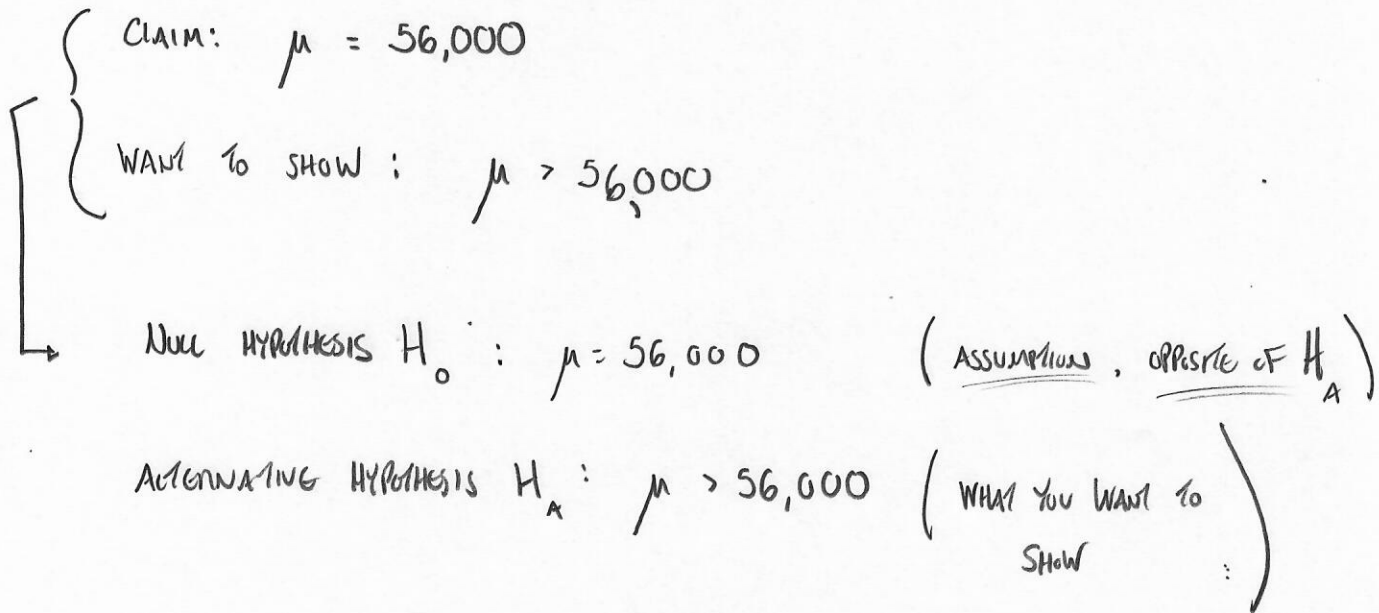 CLAIM: μ = 56,000
WANT TO SHOW: μ > 56,000
NULL HYPOTHESIS H₀ : μ = 56,000 (ASSUMPTION, OPPOSITE OF H_A)
ALTERNATIVE HYPOTHESIS H_A : μ > 56,000 (WHAT YOU WANT TO
SHOW)